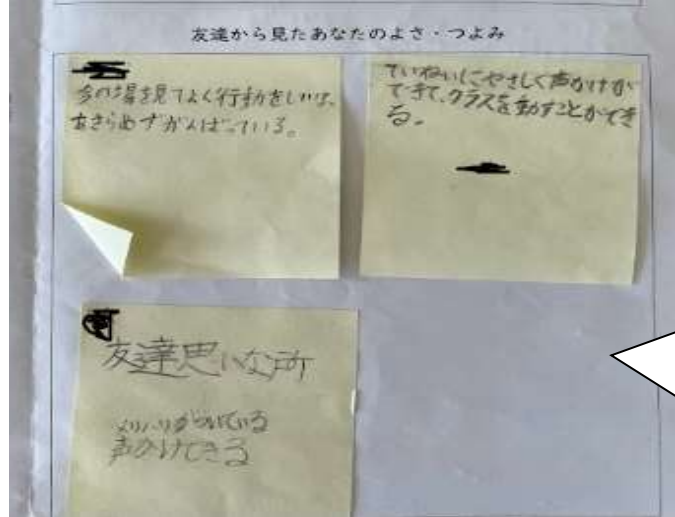 友達から見たあなたのよさ・つよみ
今の場を見てよく行動をし
あきらめずがんばっている。
ていねいにやさしく声かけが
できて、クラスを動すことができ
る。
友達思いな所
メリハリがついている
声かけできる